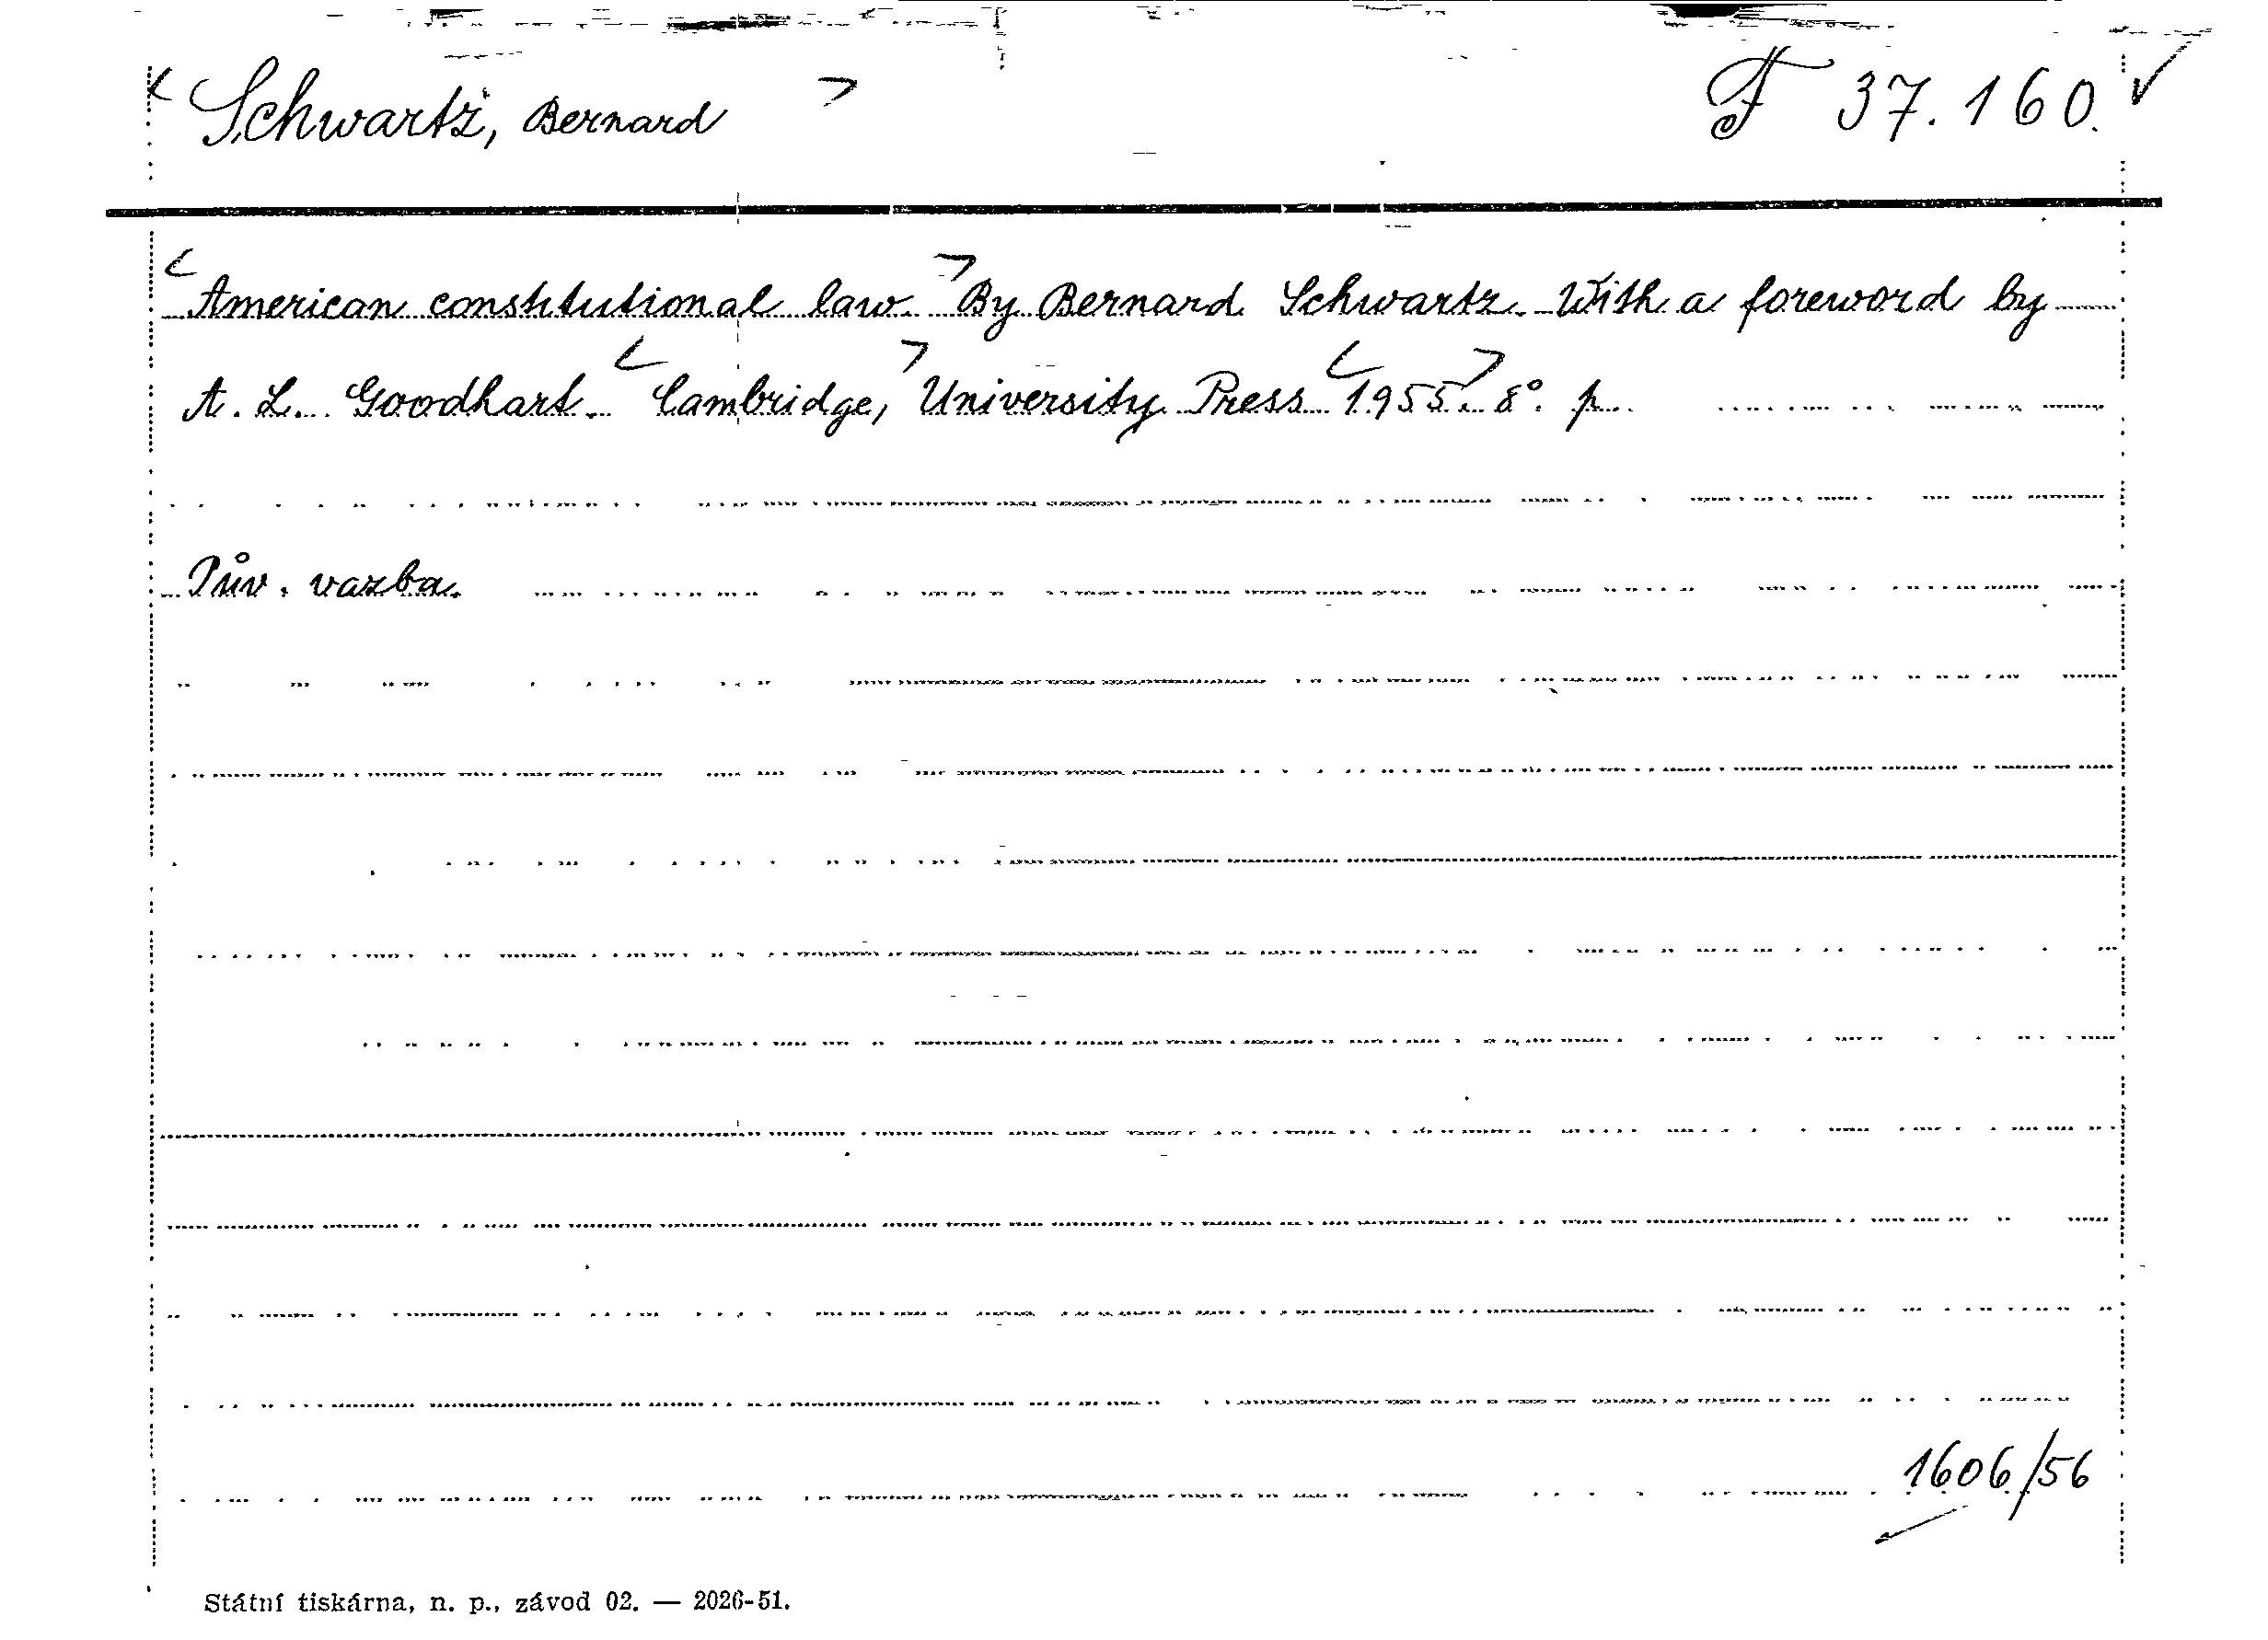 < Schwartz, Bernard > F 37.160. ✓
< American constitutional law. > By Bernard Schwartz. With a foreword by
A. L. Goodhart. < Cambridge, > University Press < 1955. > 8°. p.
Pův. vazba.
1606/56
Státní tiskárna, n. p., závod 02. — 2026-51.